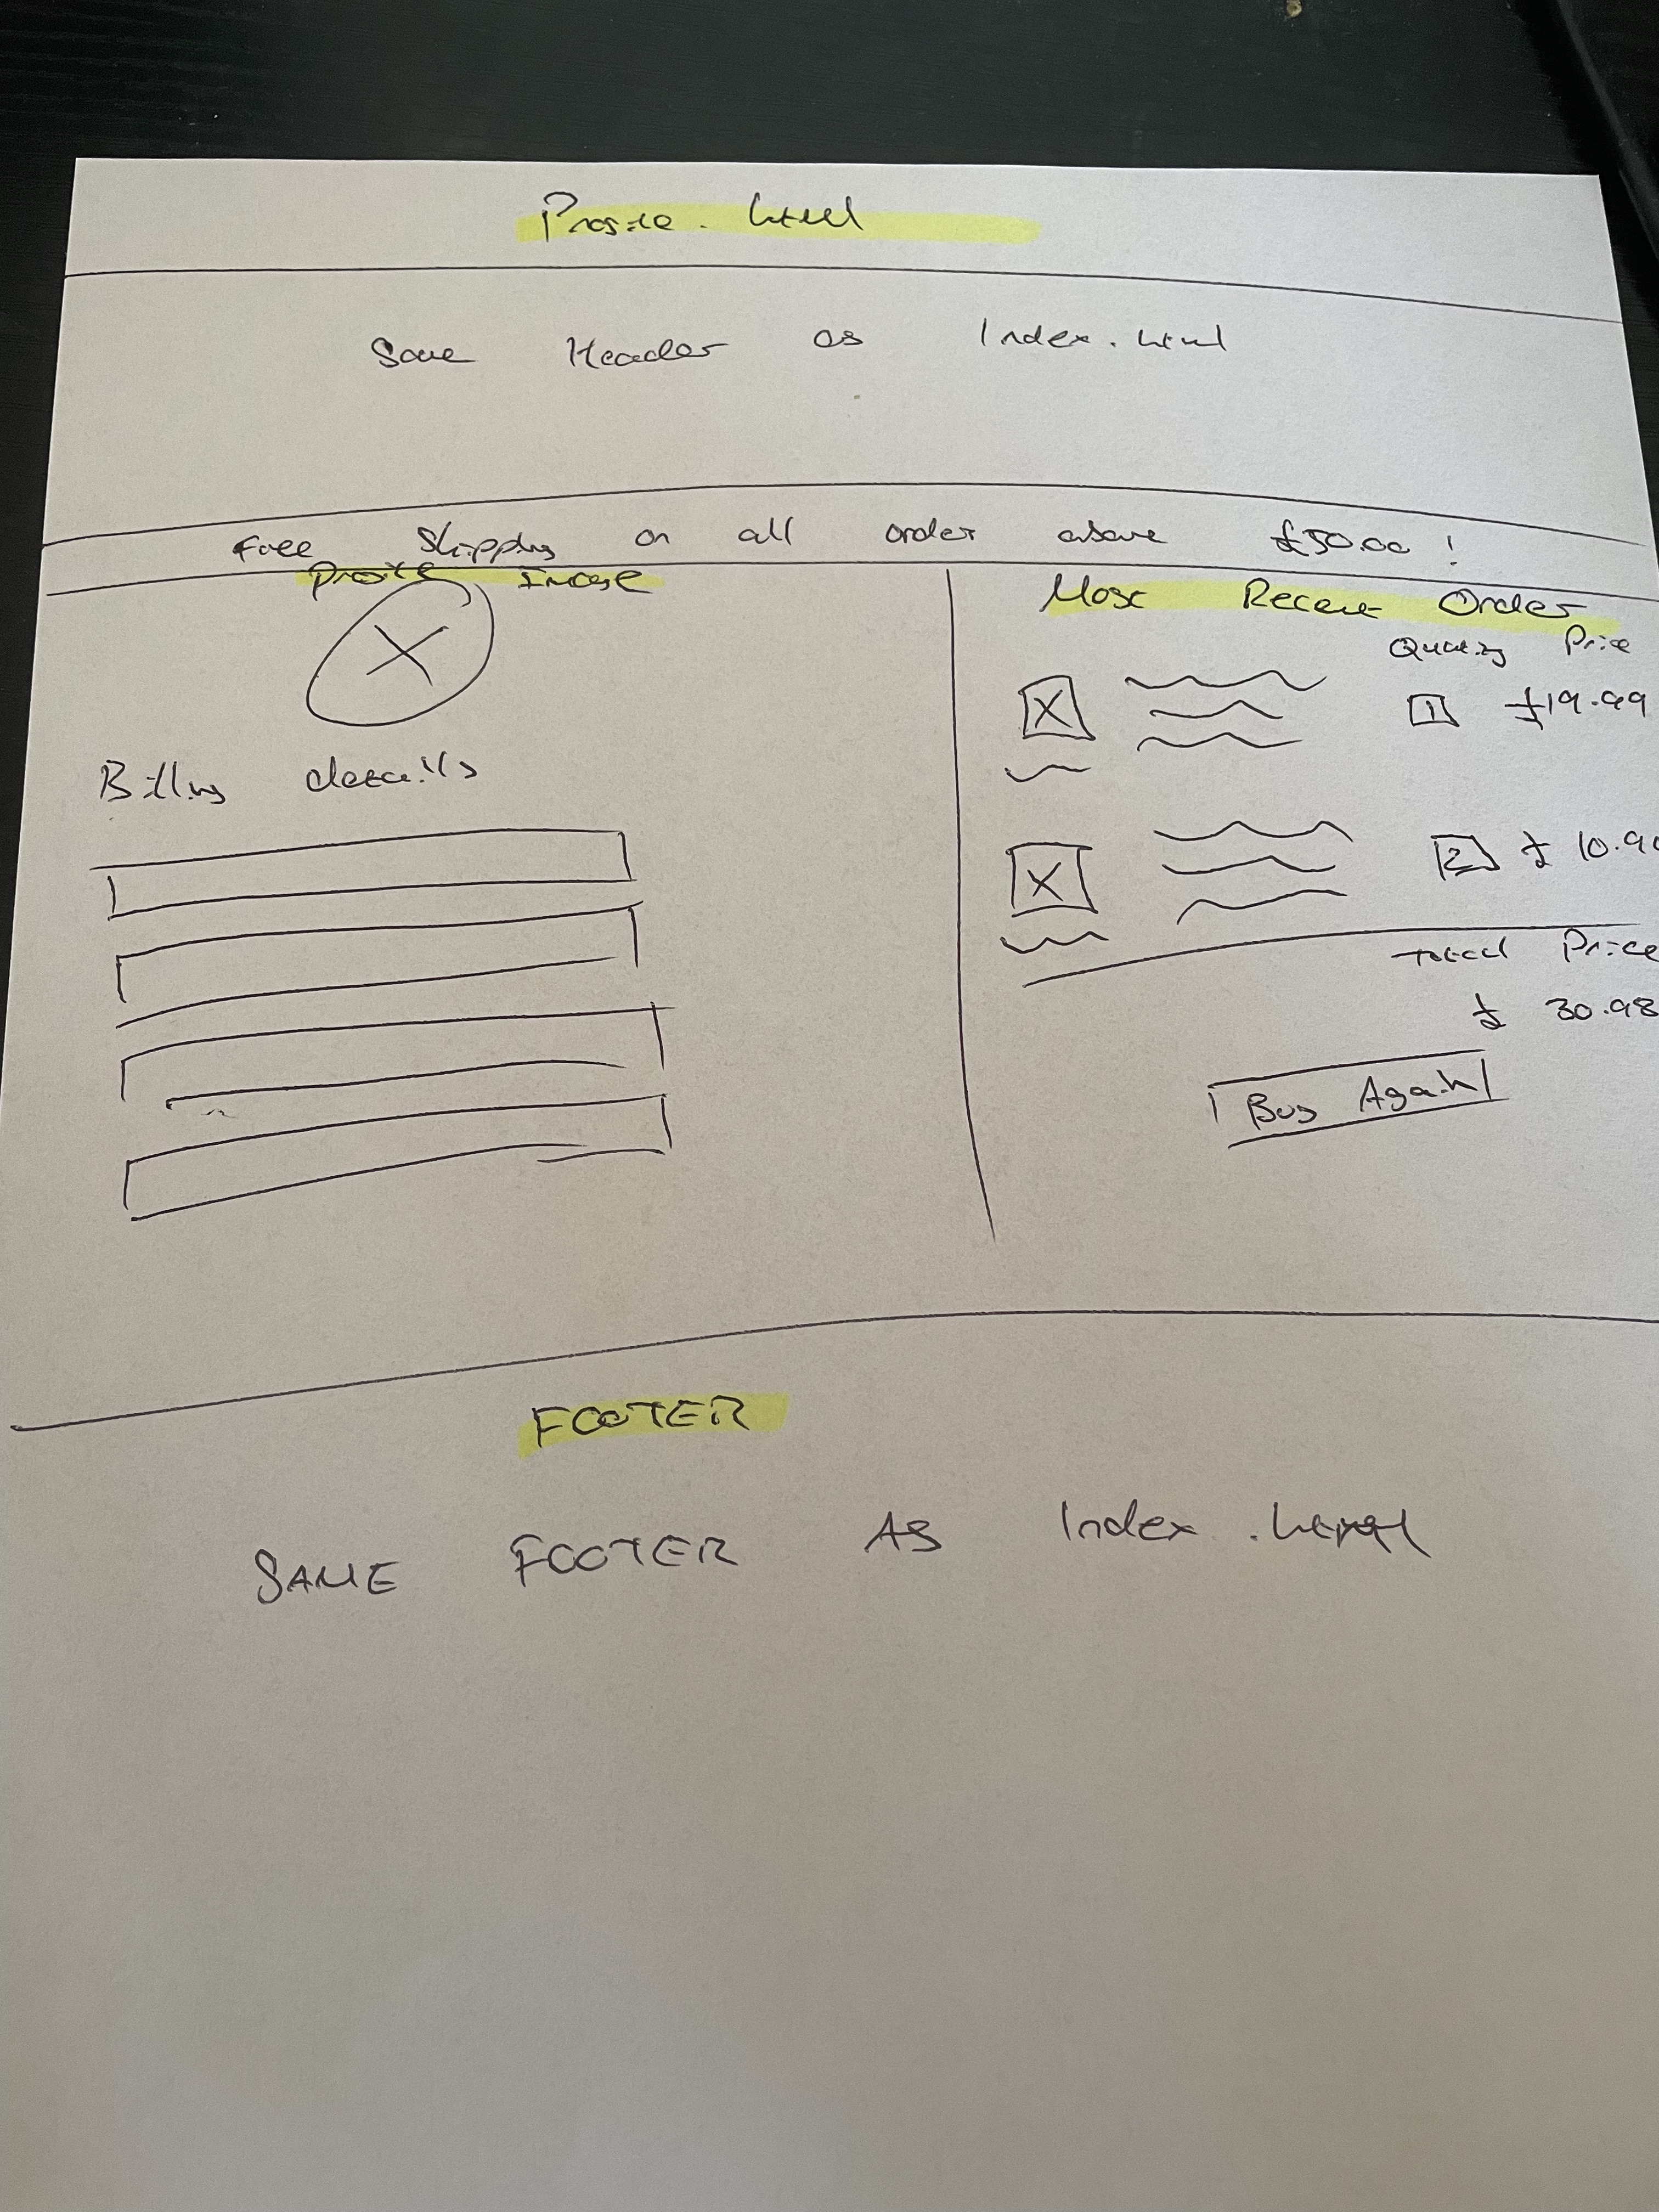 Profile. html
Same Header as Index.html
Free Shipping on all order above £50.00 !
Profile Image
Billing details
Most Recent Order
Quantity Price
1 £19.99
2 £ 10.9
Total Price
£ 30.98
Buy Again
FOOTER
SAME FOOTER AS Index .html